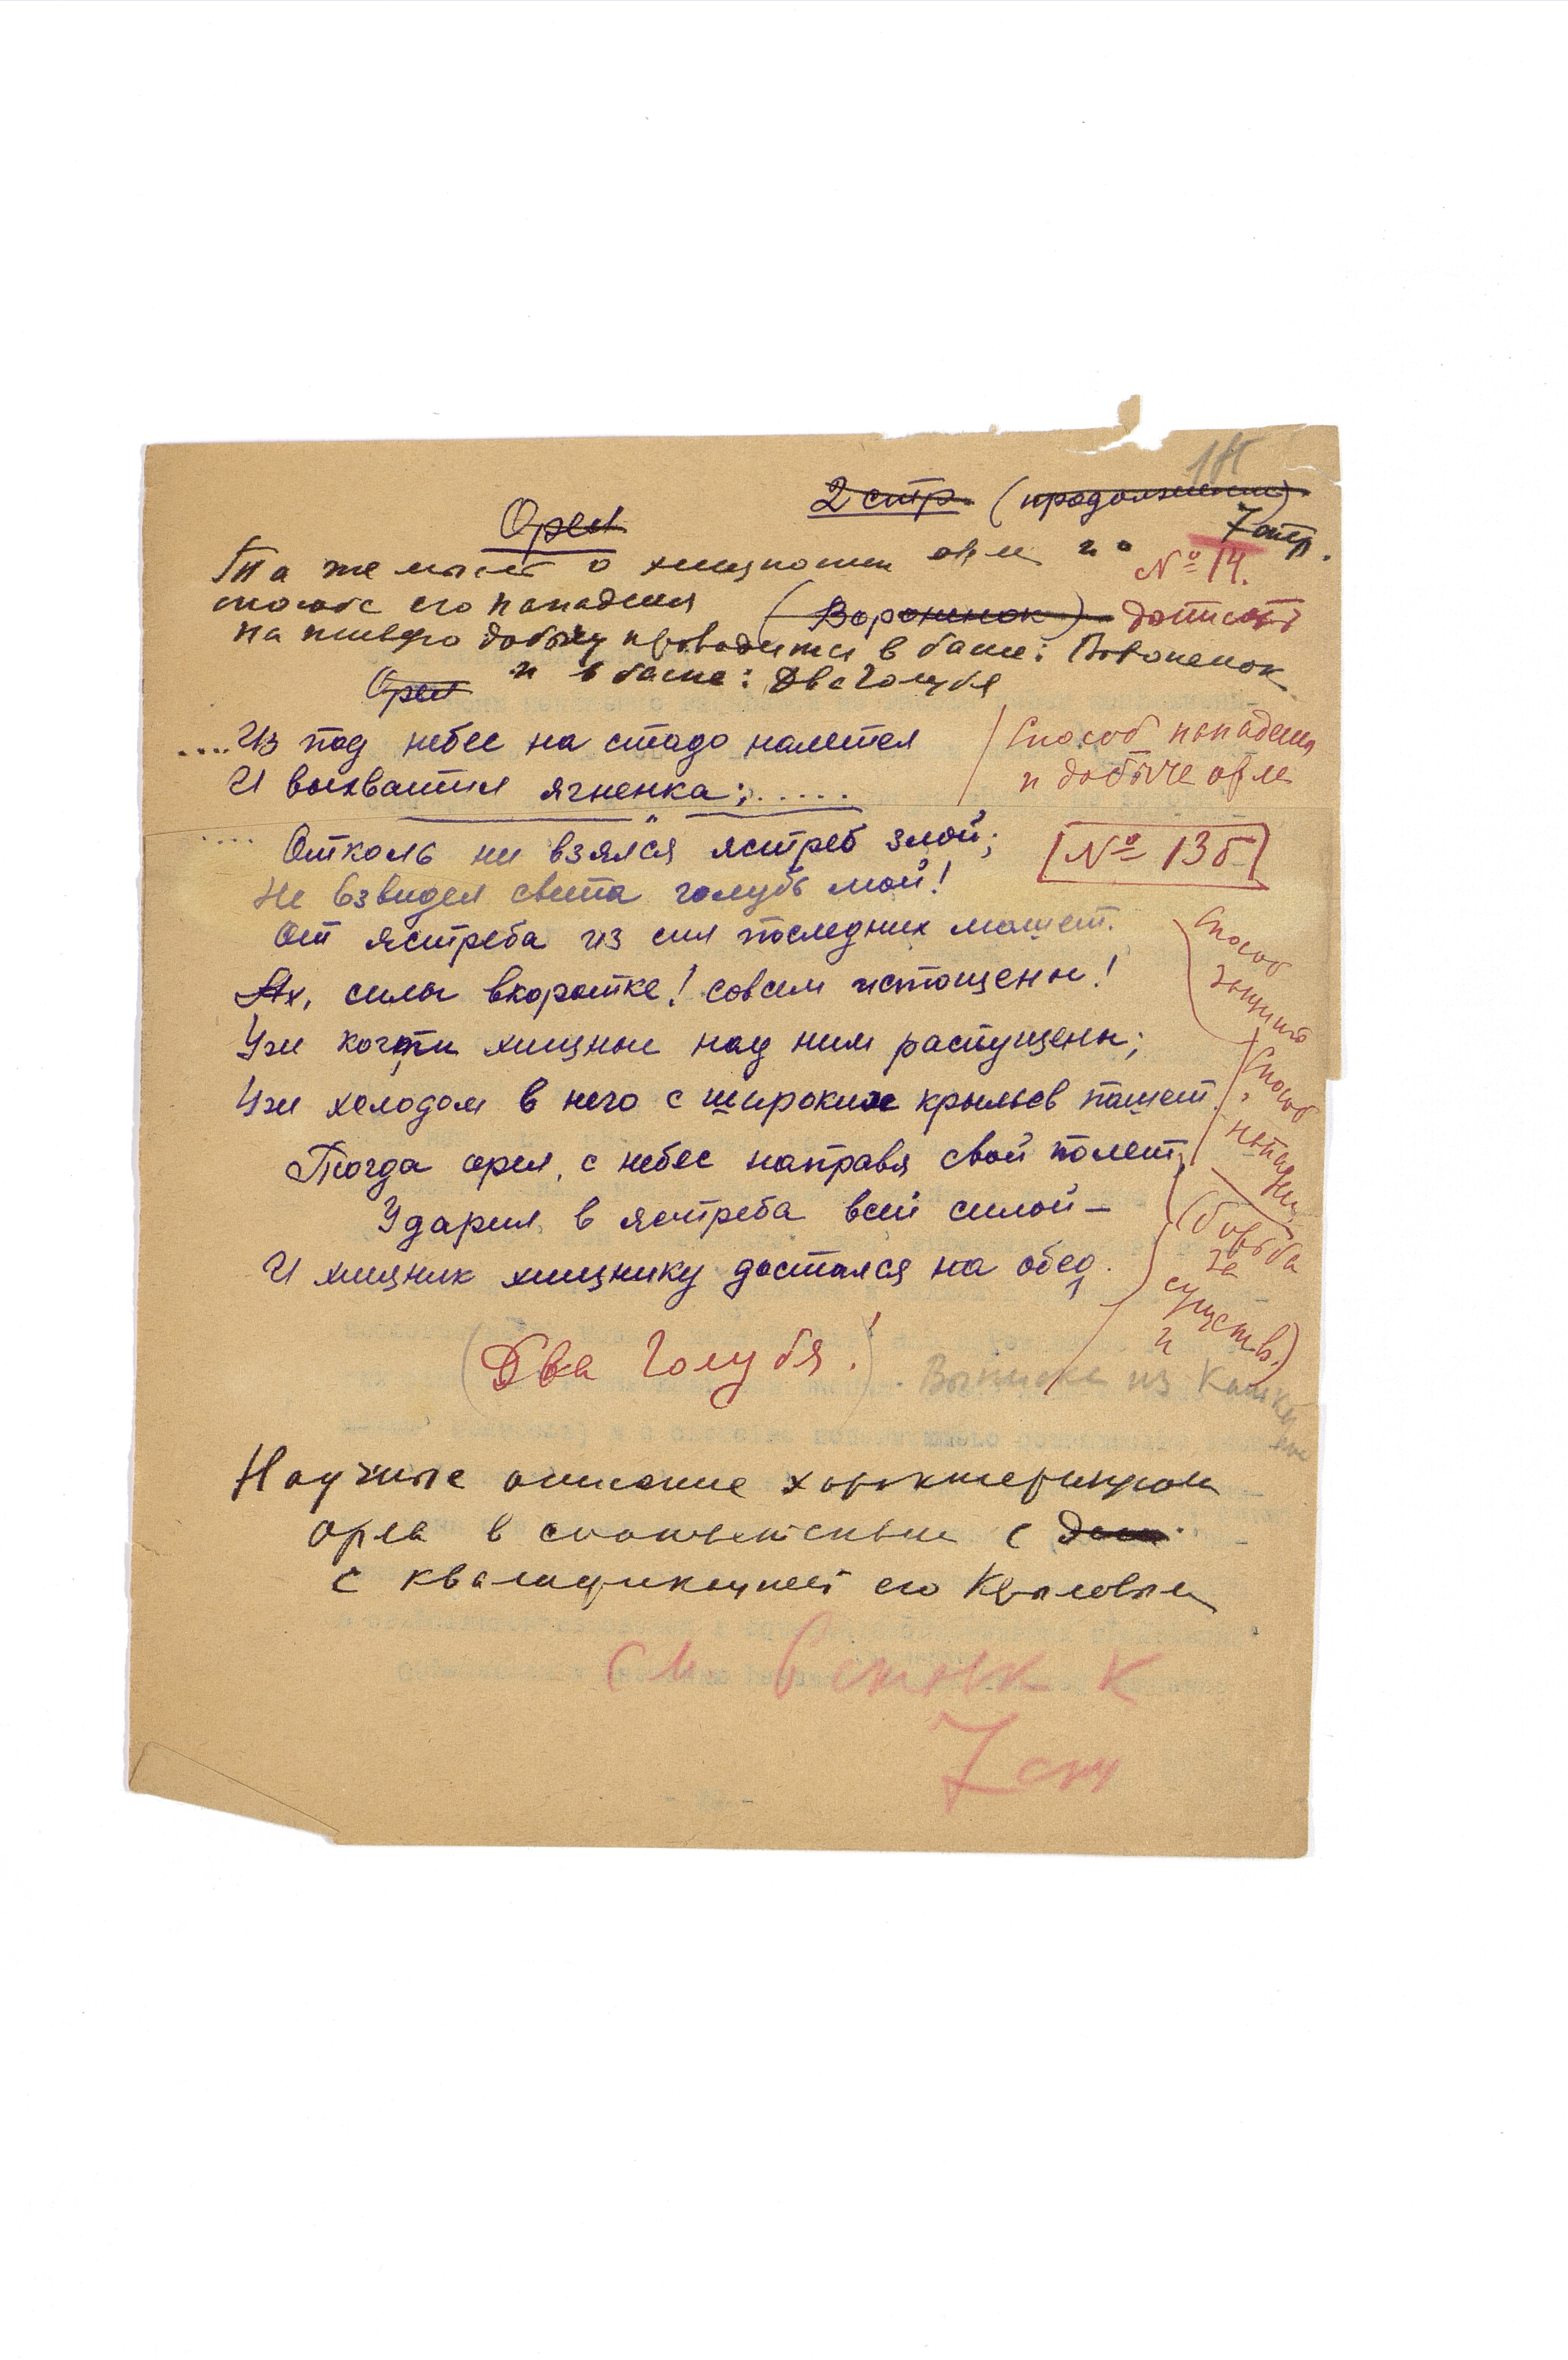 2 стр. (продолжение)
Орел
7 стр.
Та же мысль о хищности орла и о
№ 14.
способе его нападения (Вороненок) дописать
на живую добычу проводится в басне: Вороненок
Орел и в басне: Два Голубя
....Из под небес на стадо налетел
И выхватил ягненка;.....
Способ нападения
и добыче орла
.... Отколь ни взялся ястреб злой;
№ 13б
Не взвидел света голубь мой!
От ястреба из сил последних машет.
Ах, силы вкоротке! совсем истощены!
Способ
защиты
Уж когти хищные над ним распущены;
Уж холодом в него с широких крыльев пашет.
Способ
нападен.
Тогда орел, с небес направя свой полет,
Ударил в ястреба всей силой —
И хищник хищнику достался на обед.
(борьба
за
существ.)
и
(Два Голубя!)
Выписка из
Научные описание
орла в соответствии с
с квалификацией его Крыловым
См.
к
7 стр